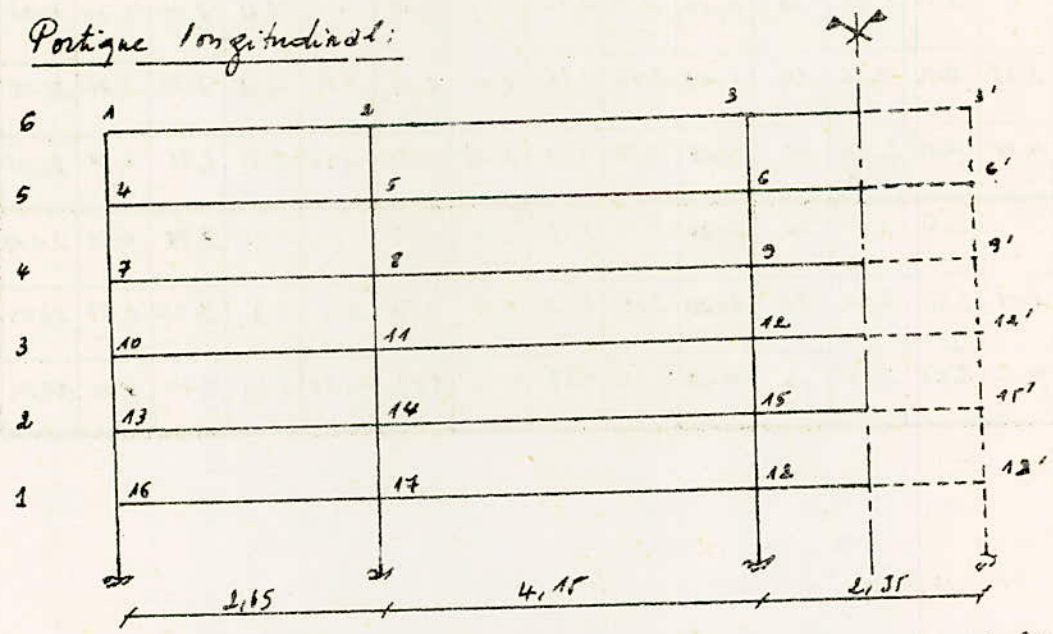 Portique longitudinal:
6 1 2 3 3'
5 4 5 6 6'
4 7 8 9 9'
3 10 11 12 12'
2 13 14 15 15'
1 16 17 18 18'
2,65 4,15 2,35